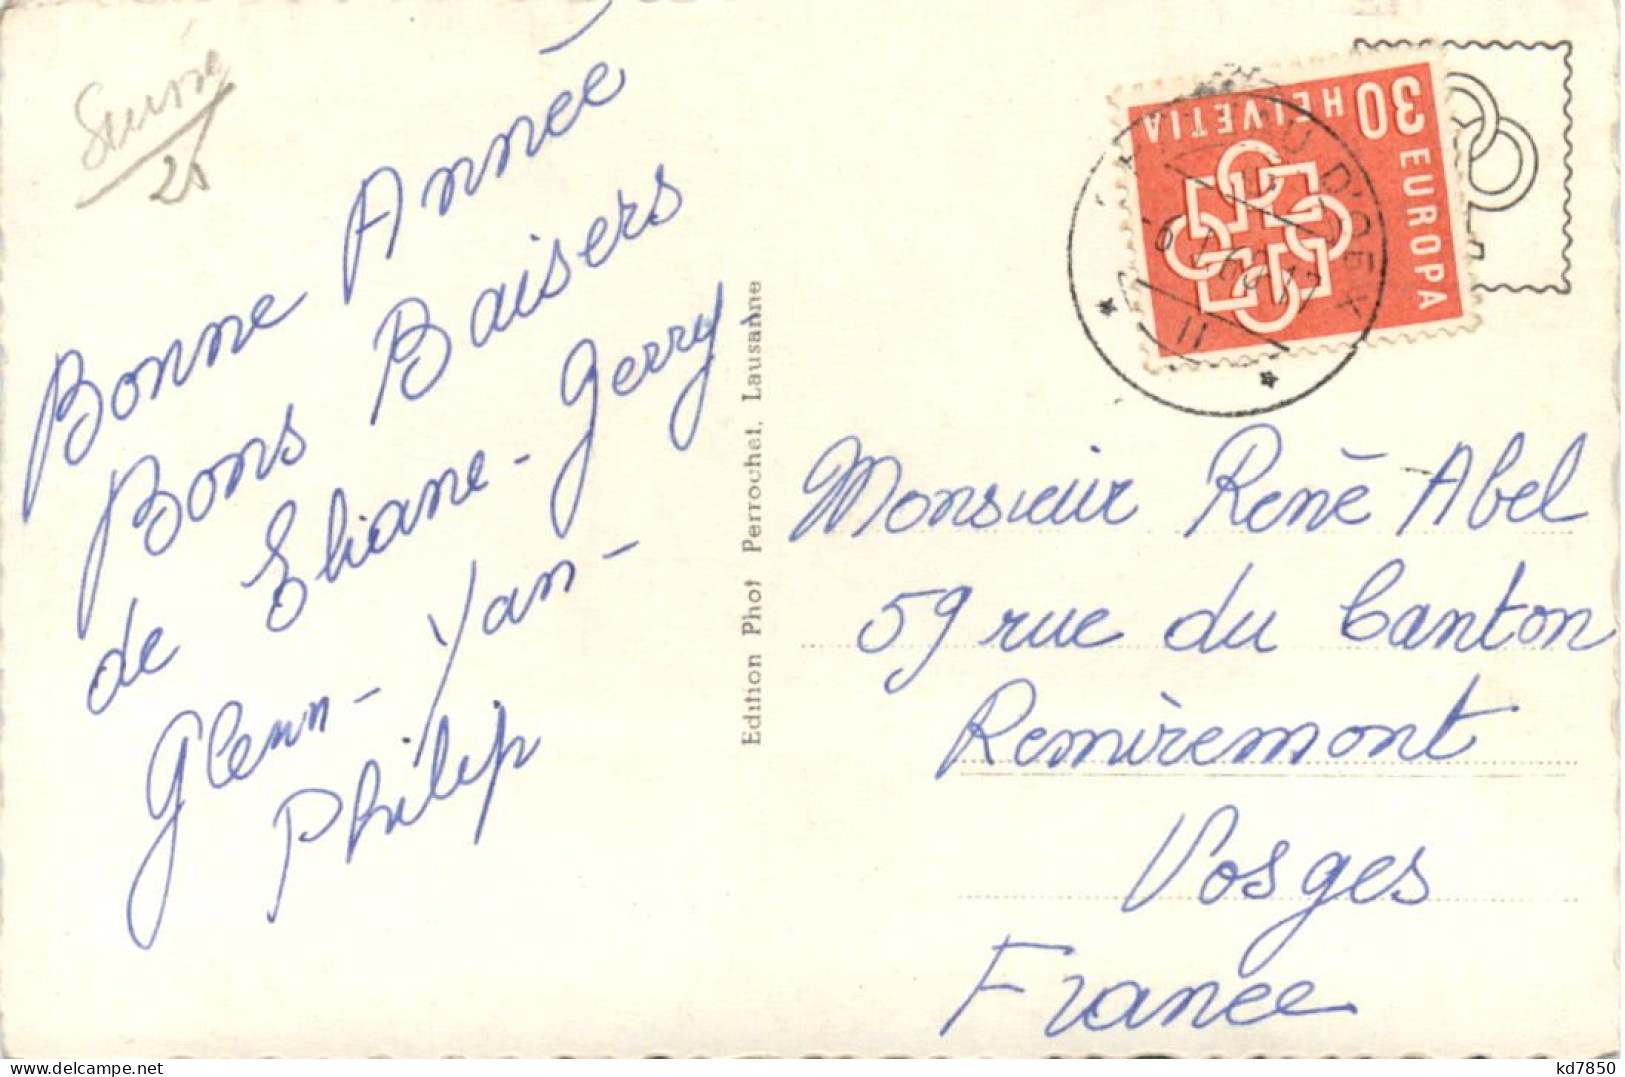 Suisse
25
Bonne Année
Bons Baisers
de Eliane - Gerry -
Glenn - Yan -
Philip
Edition Phot Perrochet, Lausanne
30 HELVETIA
EUROPA
D'OEX
Monsieur René Abel
59 rue du Canton
Remiremont
Vosges
France
kd7850